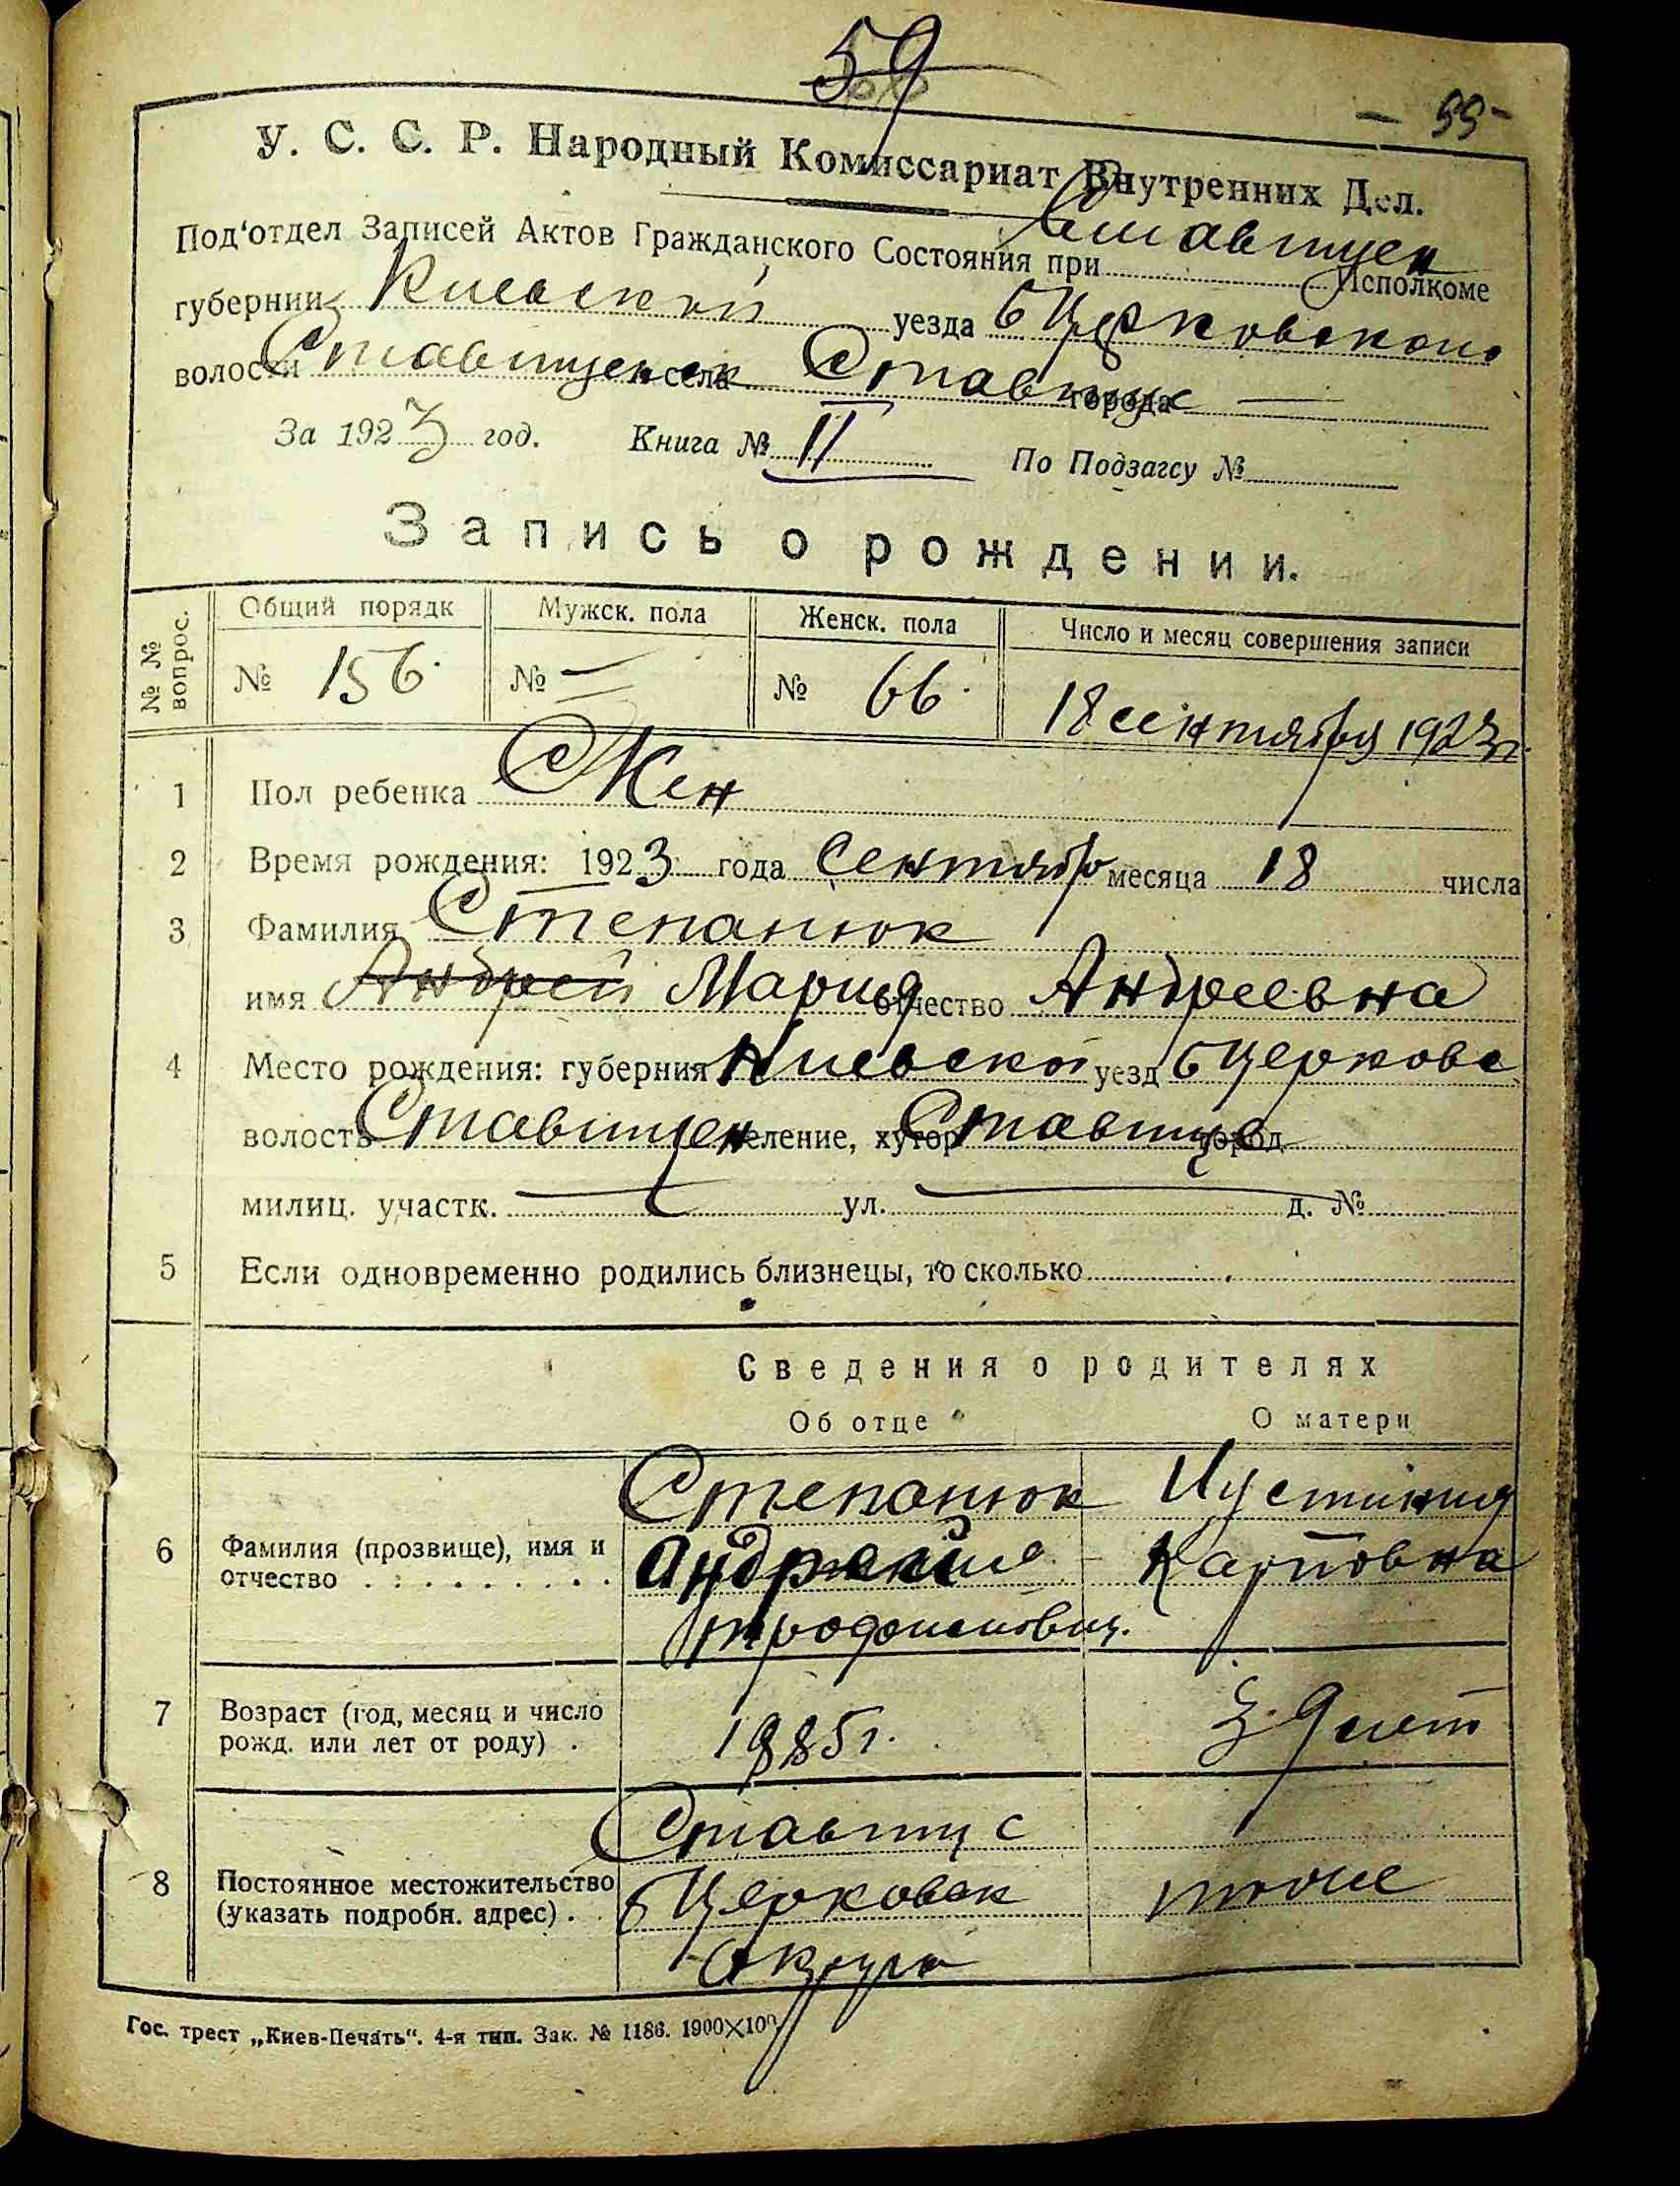 59
— 55 -
У. С. С. Р. Народный Комиссариат Внутренних Дел.
Под‘отдел Записей Актов Гражданского Состояния при Ставищен Исполкоме
губернии Киевской уезда БЦерковского
волости Ставищенск села Ставище города —
За 1923 год. Книга № II По Подзагсу №
Запись о рождении.
№ № вопрос. Общий порядк Мужск. пола Женск. пола Число и месяц совершения записи
№ 156. № — № 66. 18 сентября 1923 г.
1 Пол ребенка Жен
2 Время рождения: 1923 года Сентябр месяца 18 числа
3 Фамилия Степанюк
имя Андрей Мария отчество Андреевна
4 Место рождения: губерния Киевской уезд БЦерковс
волость Ставищен селение, хутор Ставище город
милиц. участк. — ул. — д. №
5 Если одновременно родились близнецы, то сколько
Сведения о родителях
Об отце О матери
Степанюк Иустиния
6 Фамилия (прозвище), имя и Карповна
отчество
Трофимович.
7 Возраст (год, месяц и число
рожд. или лет от роду) . 1885 г. 39 лет
Ставищ с
8 Постоянное местожительство БЦерковск тоже
(указать подробн. адрес) .
округа
Гос. трест „Киев-Печать“. 4-я тип. Зак. № 1186. 1900×100